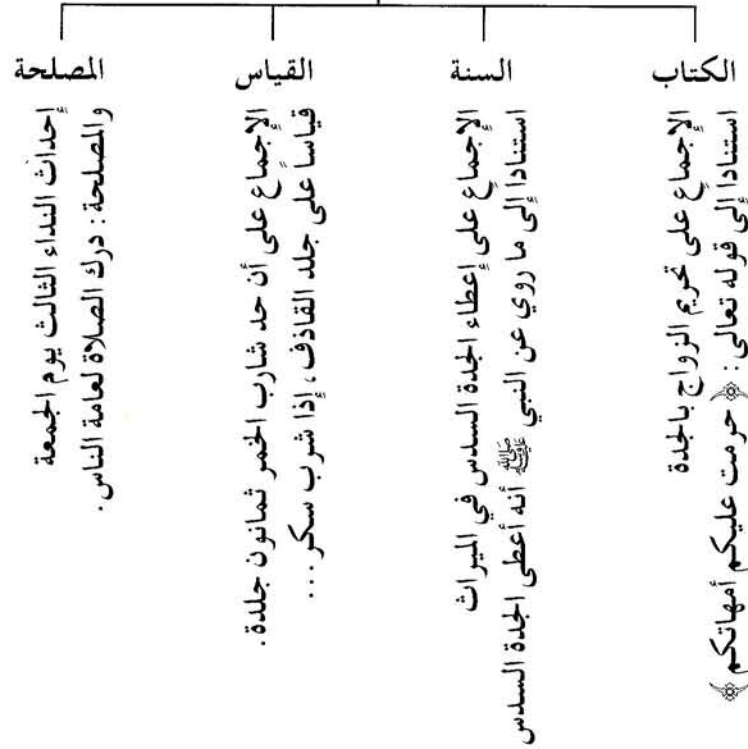 الكتاب
الإجماع على تحريم الزواج بالجدة
استنادا إلى قوله تعالى : ﴿ حرمت عليكم أمهاتكم ﴾
السنة
الإجماع على إعطاء الجدة السدس في الميراث
استنادا إلى ما روي عن النبي ﷺ أنه أعطى الجدة السدس
القياس
الإجماع على أن حد شارب الخمر ثمانون جلدة .
قياساً على جلد القاذف ، إذا شرب سكر ...
المصلحة
إحداث النداء الثالث يوم الجمعة
والمصلحة : درك الصلاة لعامة الناس .